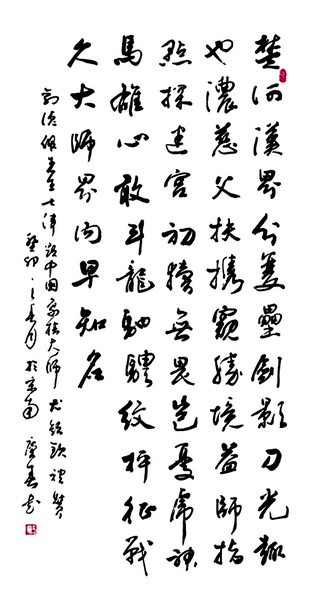 楚河漢界分雙壘劍影刀光趣
也濃慈父扶攜窺勝境益師指
點探迷宮初犢無畏豈憂虎神
馬雄心敢斗龍馳騁紋枰征戰
久大師界內早知名
先生七律 中國象棋大師 尤穎欽 禮贊
癸卯之春月於京南